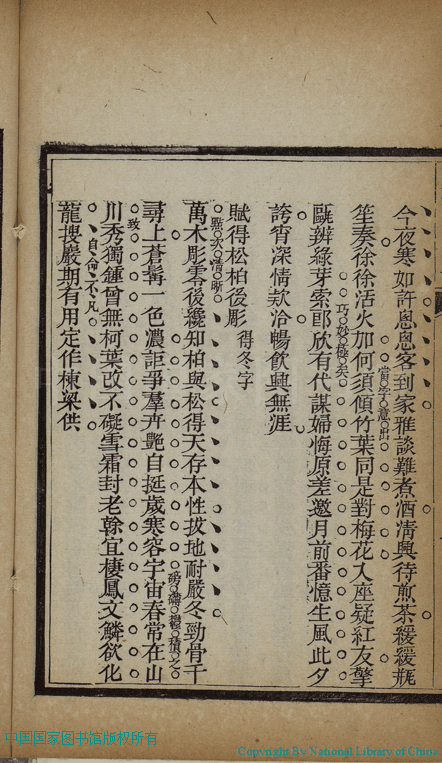 今夜寒如許悤悤客到家雅談難煮酒清興待煎茶緩緩瓶
當字意出
笙奏徐徐活火加何須傾竹葉同是對梅花入座疑紅友擎
巧妙極矣
甌辨綠芽索郎欣有代謀婦悔原差邀月前番憶生風此夕
誇宵深情欵洽暢飲興無涯
賦得松柏後彫 得冬字
萬木彫零後纔知柏與松得天存本性拔地耐嚴冬勁骨干
點次清晰
磅礴鬱積之
尋上蒼髯一色濃詎爭羣卉艷自挺歲寒容宇宙春常在山
致
川秀獨鍾曾無柯葉改不礙雪霜封老榦宜棲鳳文鱗欲化
自命不凡
龍搜巖期有用定作棟梁供
中国国家图书馆版权所有
Copyright By National Library of China